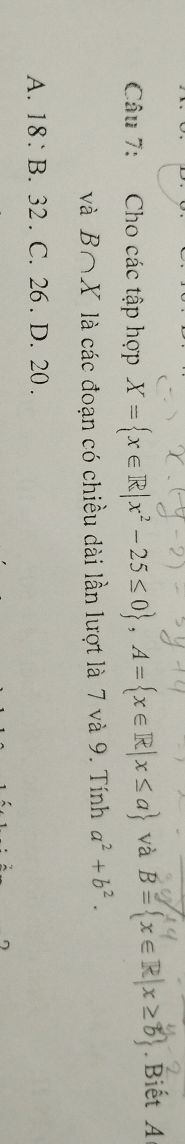 Câu 7: Cho các tập hợp X = {x ∈ ℝ | x² − 25 ≤ 0}, A = {x ∈ ℝ | x ≤ a} và B = {x ∈ ℝ | x ≥ b}. Biết A
và B ∩ X là các đoạn có chiều dài lần lượt là 7 và 9. Tính a² + b².
A. 18. B. 32. C. 26. D. 20.